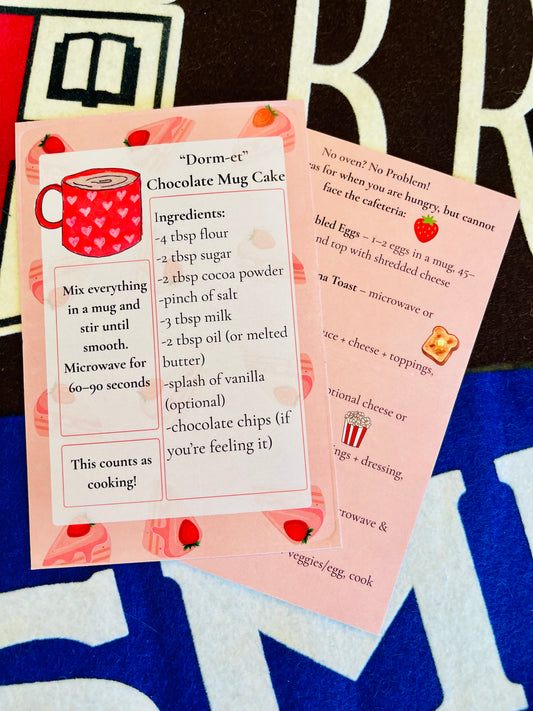 "Dorm-et"
Chocolate Mug Cake
Ingredients:
-4 tbsp flour
-2 tbsp sugar
-2 tbsp cocoa powder
-pinch of salt
-3 tbsp milk
-2 tbsp oil (or melted
butter)
-splash of vanilla
(optional)
-chocolate chips (if
you're feeling it)
Mix everything
in a mug and
stir until
smooth.
Microwave for
60–90 seconds
This counts as
cooking!
No oven? No Problem!
for when you are hungry, but cannot
face the cafeteria:
Eggs – 1–2 eggs in a mug, 45–
top with shredded cheese
Toast – microwave or
+ cheese + toppings,
cheese or
+ dressing,
&
veggies/egg, cook